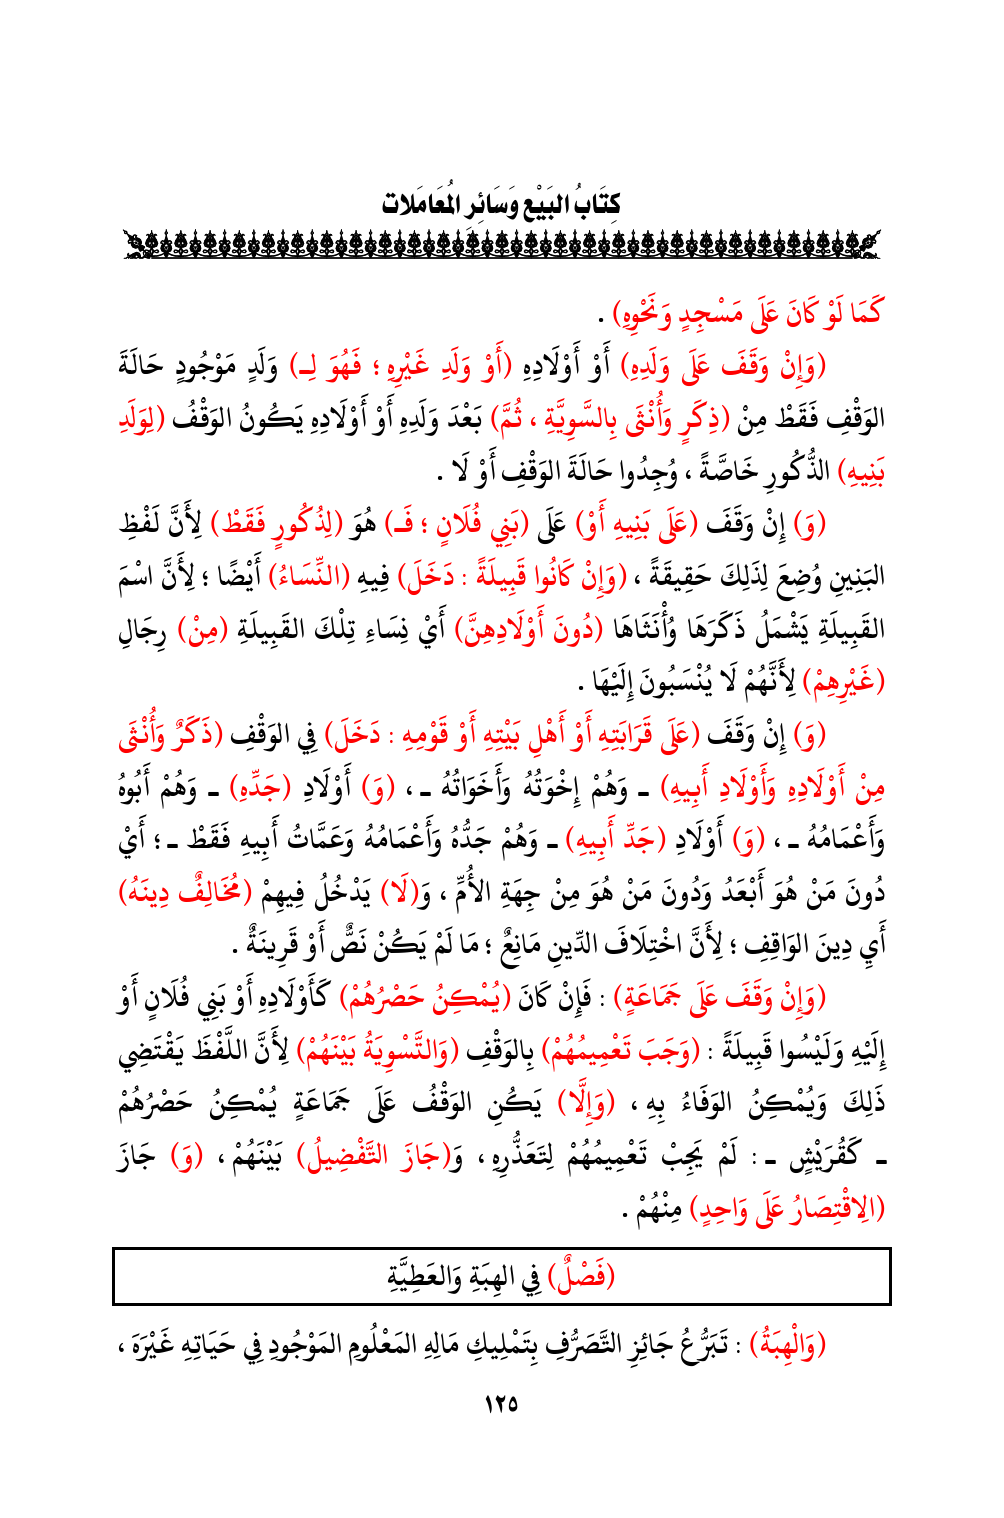 كِتَابُ البَيْعِ وَسَائِرِ المُعَامَلات
كَمَا لَوْ كَانَ عَلَى مَسْجِدٍ وَنَحْوِهِ) .
(وَإِنْ وَقَفَ عَلَى وَلَدِهِ) أَوْ أَوْلَادِهِ (أَوْ وَلَدِ غَيْرِهِ ؛ فَهُوَ لِـ) وَلَدٍ مَوْجُودٍ حَالَةَ
الوَقْفِ فَقَطْ مِنْ (ذِكَرٍ وَأُنْثَى بِالسَّوِيَّةِ ، ثُمَّ) بَعْدَ وَلَدِهِ أَوْ أَوْلَادِهِ يَكُونُ الوَقْفُ (لِوَلَدِ
بَنِيهِ) الذُّكُورِ خَاصَّةً ، وُجِدُوا حَالَةَ الوَقْفِ أَوْ لَا .
(وَ) إِنْ وَقَفَ (عَلَى بَنِيهِ أَوْ) عَلَى (بَنِي فُلَانٍ ؛ فَـ) هُوَ (لِذُكُورٍ فَقَطْ) لِأَنَّ لَفْظِ
البَنِينِ وُضِعَ لِذَلِكَ حَقِيقَةً ، (وَإِنْ كَانُوا قَبِيلَةً : دَخَلَ) فِيهِ (النِّسَاءُ) أَيْضًا ؛ لِأَنَّ اسْمَ
القَبِيلَةِ يَشْمَلُ ذَكَرَهَا وُأُنْثَاهَا (دُونَ أَوْلَادِهِنَّ) أَيْ نِسَاءِ تِلْكَ القَبِيلَةِ (مِنْ) رِجَالِ
(غَيْرِهِمْ) لِأَنَّهُمْ لَا يُنْسَبُونَ إِلَيْهَا .
(وَ) إِنْ وَقَفَ (عَلَى قَرَابَتِهِ أَوْ أَهْلِ بَيْتِهِ أَوْ قَوْمِهِ : دَخَلَ) فِي الوَقْفِ (ذَكَرٌ وَأُنْثَى
مِنْ أَوْلَادِهِ وَأَوْلَادِ أَبِيهِ) ـ وَهُمْ إِخْوَتُهُ وَأَخَوَاتُهُ ـ ، (وَ) أَوْلَادِ (جَدِّهِ) ـ وَهُمْ أَبُوهُ
وَأَعْمَامُهُ ـ ، (وَ) أَوْلَادِ (جَدِّ أَبِيهِ) ـ وَهُمْ جَدُّهُ وَأَعْمَامُهُ وَعَمَّاتُ أَبِيهِ فَقَطْ ـ ؛ أَيْ
دُونَ مَنْ هُوَ أَبْعَدُ وَدُونَ مَنْ هُوَ مِنْ جِهَةِ الأُمِّ ، وَ(لَا) يَدْخُلُ فِيهِمْ (مُخَالِفٌ دِينَهُ)
أَيِ دِينَ الوَاقِفِ ؛ لِأَنَّ اخْتِلَافَ الدِّينِ مَانِعٌ ؛ مَا لَمْ يَكُنْ نَصٌّ أَوْ قَرِينَةٌ .
(وَإِنْ وَقَفَ عَلَى جَمَاعَةٍ) : فَإِنْ كَانَ (يُمْكِنُ حَصْرُهُمْ) كَأَوْلَادِهِ أَوْ بَنِي فُلَانٍ أَوْ
إِلَيْهِ وَلَيْسُوا قَبِيلَةً : (وَجَبَ تَعْمِيمُهُمْ) بِالوَقْفِ (وَالتَّسْوِيَةُ بَيْنَهُمْ) لِأَنَّ اللَّفْظَ يَقْتَضِي
ذَلِكَ وَيُمْكِنُ الوَفَاءُ بِهِ ، (وَإِلَّا) يَكُنِ الوَقْفُ عَلَى جَمَاعَةٍ يُمْكِنُ حَصْرُهُمْ
ـ كَقُرَيْشٍ ـ : لَمْ يَجِبْ تَعْمِيمُهُمْ لِتَعَذُّرِهِ ، وَ(جَازَ التَّفْضِيلُ) بَيْنَهُمْ ، (وَ) جَازَ
(الِاقْتِصَارُ عَلَى وَاحِدٍ) مِنْهُمْ .
(فَصْلٌ) فِي الهِبَةِ وَالعَطِيَّةِ
(وَالْهِبَةُ) : تَبَرُّعُ جَائِزِ التَّصَرُّفِ بِتَمْلِيكِ مَالِهِ المَعْلُومِ المَوْجُودِ فِي حَيَاتِهِ غَيْرَهَ ،
١٢٥